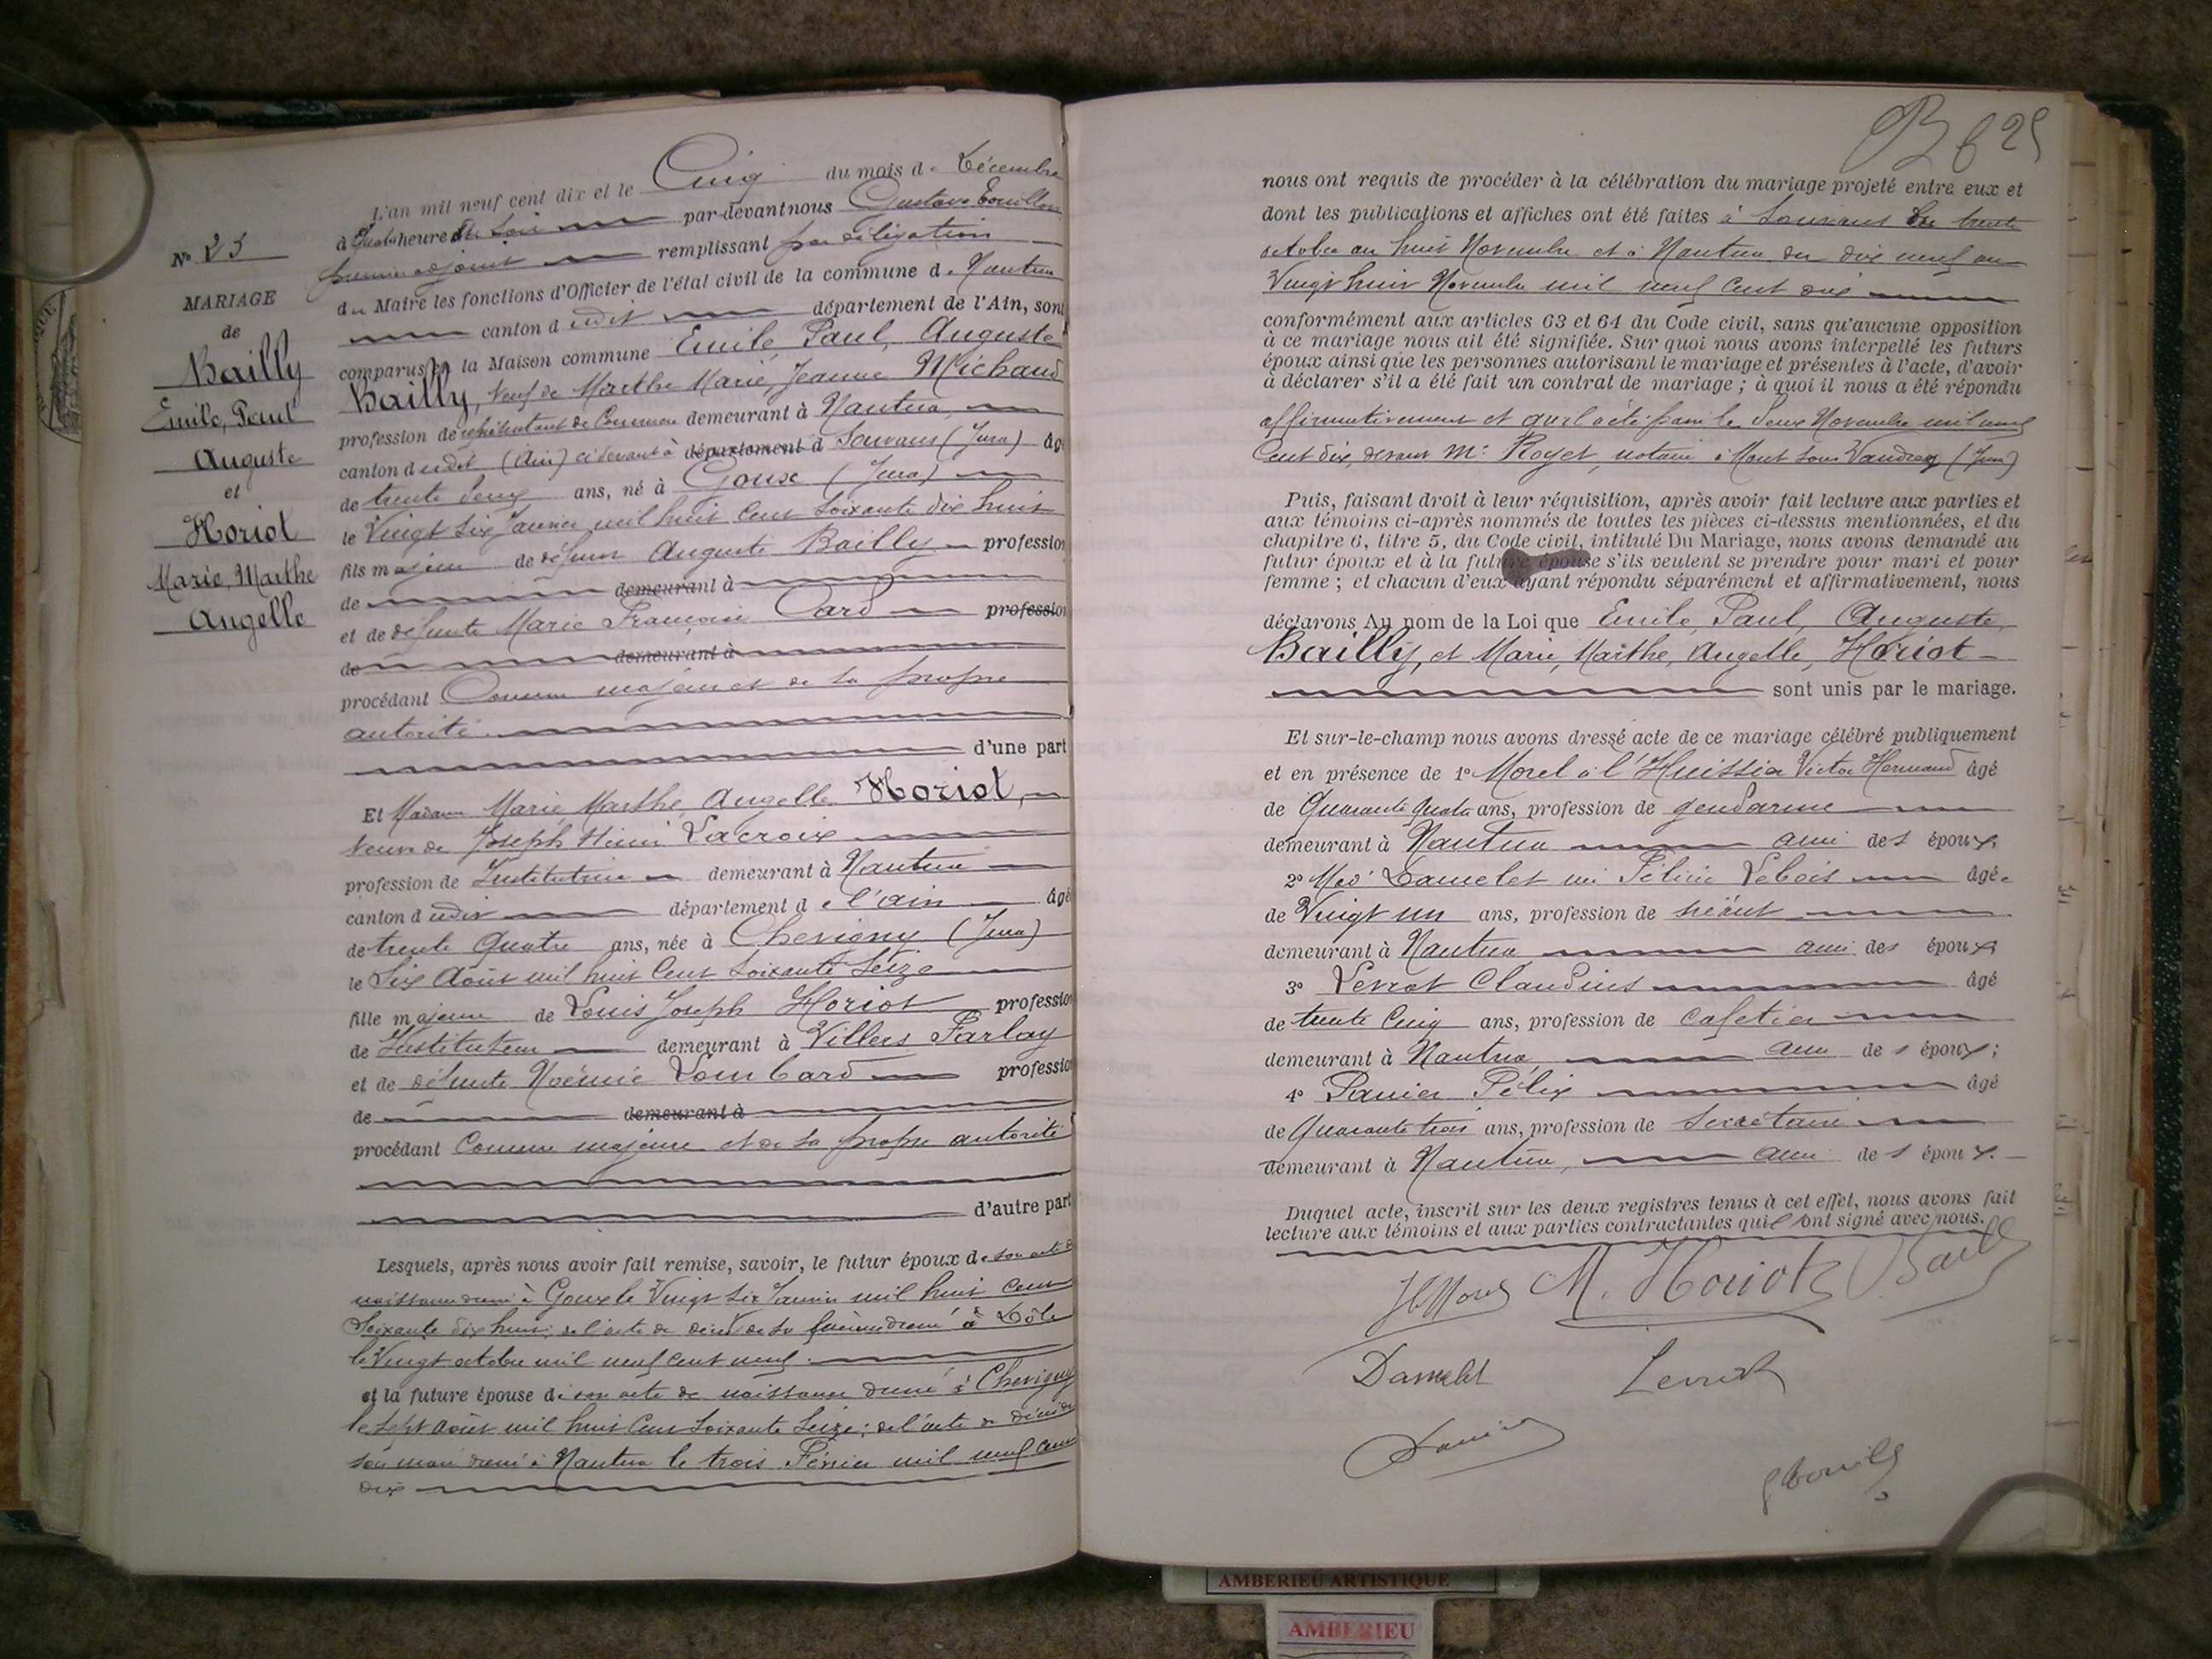 N° 25
MARIAGE
de
Bailly
Emile, Paul
Auguste
et
Horiot
Marie, Marthe
Angelle
L'an mil neuf cent dix et le Cinq du mois de Décembre
à quatre heures du soir par-devant nous Gustave
premier adjoint remplissant par délégation
du Maire les fonctions d'Officier de l'état civil de la commune de Nantua
canton dudit département de l'Ain, sont
comparus en la Maison commune Emile, Paul, Auguste
Bailly, veuf de Marthe Marie, Jeanne Michaud
profession de représentant de Commerce demeurant à Nantua
canton dudit (Ain) ci devant à département d Souvans (Jura) âgé
de trente deux ans, né à Goux (Jura)
le Vingt six Janvier mil huit Cent soixante dix huit
fils majeur de défunt Auguste Bailly profession
de demeurant à
et de défunte Marie Françoise Card profession
de demeurant à
procédant Comme majeur et de sa propre
autorité
d'une part
Et Madame Marie, Marthe, Angelle Horiot,
veuve de Joseph Henri Lacroix
profession de Institutrice demeurant à Nantua
canton dudit département de l'ain âgé
de trente Quatre ans, née à Chevigny (Jura)
le Six Août mil huit Cent soixante seize
fille majeure de Louis Joseph Horiot profession
de Instituteur demeurant à Villers Farlay
et de défunte Noémie Lombard profession
de demeurant à
procédant Comme majeure et de sa propre autorité
d'autre part
Lesquels, après nous avoir fait remise, savoir, le futur époux de son acte de
naissance dressé à Goux le Vingt six Janvier mil huit cent
Soixante dix huit; de l'acte de décès de sa femme dressé à Dôle
le Vingt octobre mil neuf cent neuf.
et la future épouse de son acte de naissance dressé à Chevigny
le sept août mil huit Cent soixante seize; de l'acte de décès de
son mari dressé à Nantua le trois Février mil neuf cent
dix
B 625
nous ont requis de procéder à la célébration du mariage projeté entre eux et
dont les publications et affiches ont été faites à Souvans du trente
octobre au huit Novembre et à Nantua du dix neuf au
Vingt huit Novembre mil neuf Cent dix
conformément aux articles 63 et 64 du Code civil, sans qu'aucune opposition
à ce mariage nous ait été signifiée. Sur quoi nous avons interpellé les futurs
époux ainsi que les personnes autorisant le mariage et présentes à l'acte, d'avoir
à déclarer s'il a été fait un contrat de mariage ; à quoi il nous a été répondu
affirmativement et qu'il a été passé le deux Novembre mil neuf
Cent dix, devant Me Royet, notaire à Mont sous Vaudrey (Jura)
Puis, faisant droit à leur réquisition, après avoir fait lecture aux parties et
aux témoins ci-après nommés de toutes les pièces ci-dessus mentionnées, et du
chapitre 6, titre 5, du Code civil, intitulé Du Mariage, nous avons demandé au
futur époux et à la future épouse s'ils veulent se prendre pour mari et pour
femme ; et chacun d'eux ayant répondu séparément et affirmativement, nous
déclarons Au nom de la Loi que Emile, Paul, Auguste,
Bailly, et Marie, Marthe, Angelle, Horiot
sont unis par le mariage.
Et sur-le-champ nous avons dressé acte de ce mariage célébré publiquement
et en présence de 1° Morel à l'Huissier Victor âgé
de Quarante Quatre ans, profession de gendarme
demeurant à Nantua ami des époux;
2° Damelet née Félicie Lebois âgée
de Vingt un ans, profession de néant
demeurant à Nantua amie des époux
3° Levrat Claudius âgé
de trente Cinq ans, profession de Cafetier
demeurant à Nantua, ami des époux;
4° Panier Félix âgé
de Quarante trois ans, profession de Secrétaire
demeurant à Nantua, ami des époux.
Duquel acte, inscrit sur les deux registres tenus à cet effet, nous avons fait
lecture aux témoins et aux parties contractantes qui ont signé avec nous.
M. Horiot
Damelet Levrat
AMBERIEU ARTISTIQUE
AMBERIEU